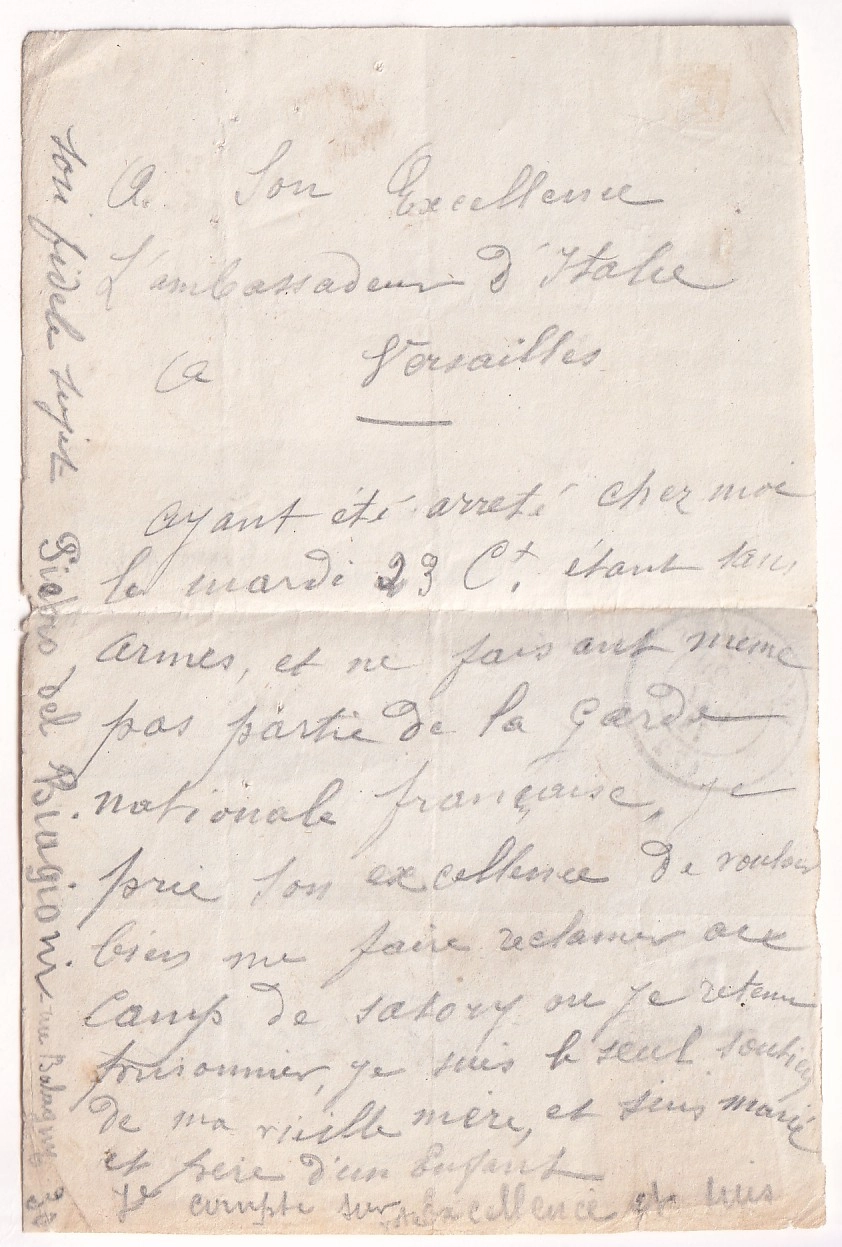 A Son Excellence
L'ambassadeur d'Italie
A Versailles
ayant été arreté chez moi
le mardi 23 Ct. étant sans
armes, et ne faisant meme
pas partie de la garde
nationale française, je
prie son excellence de vouloir
bien me faire reclamer aux
Camp de satory ou je retenu
prisonnier, je suis le seul soutien
de ma vieille mère, et suis marié
et père d'un Enfant
Je compte sur votre Excellence et suis
son fidele sujet Pietro del Biagioni rue Batagny 38